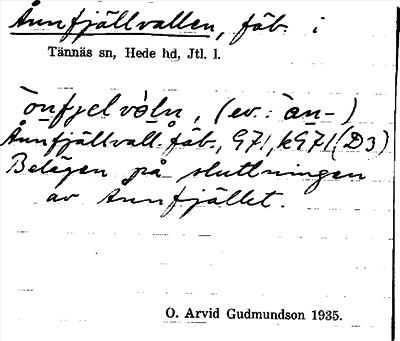 Ånnfjällvallen, fäb. i
Tännäs sn, Hede hd, Jtl. l.
ònfjelvàln, (ev.: àn-)
Ånnfjällvall. fäb., G71, kG71 (D3)
Belägen på sluttningen
av Annfjället.
O. Arvid Gudmundson 1935.